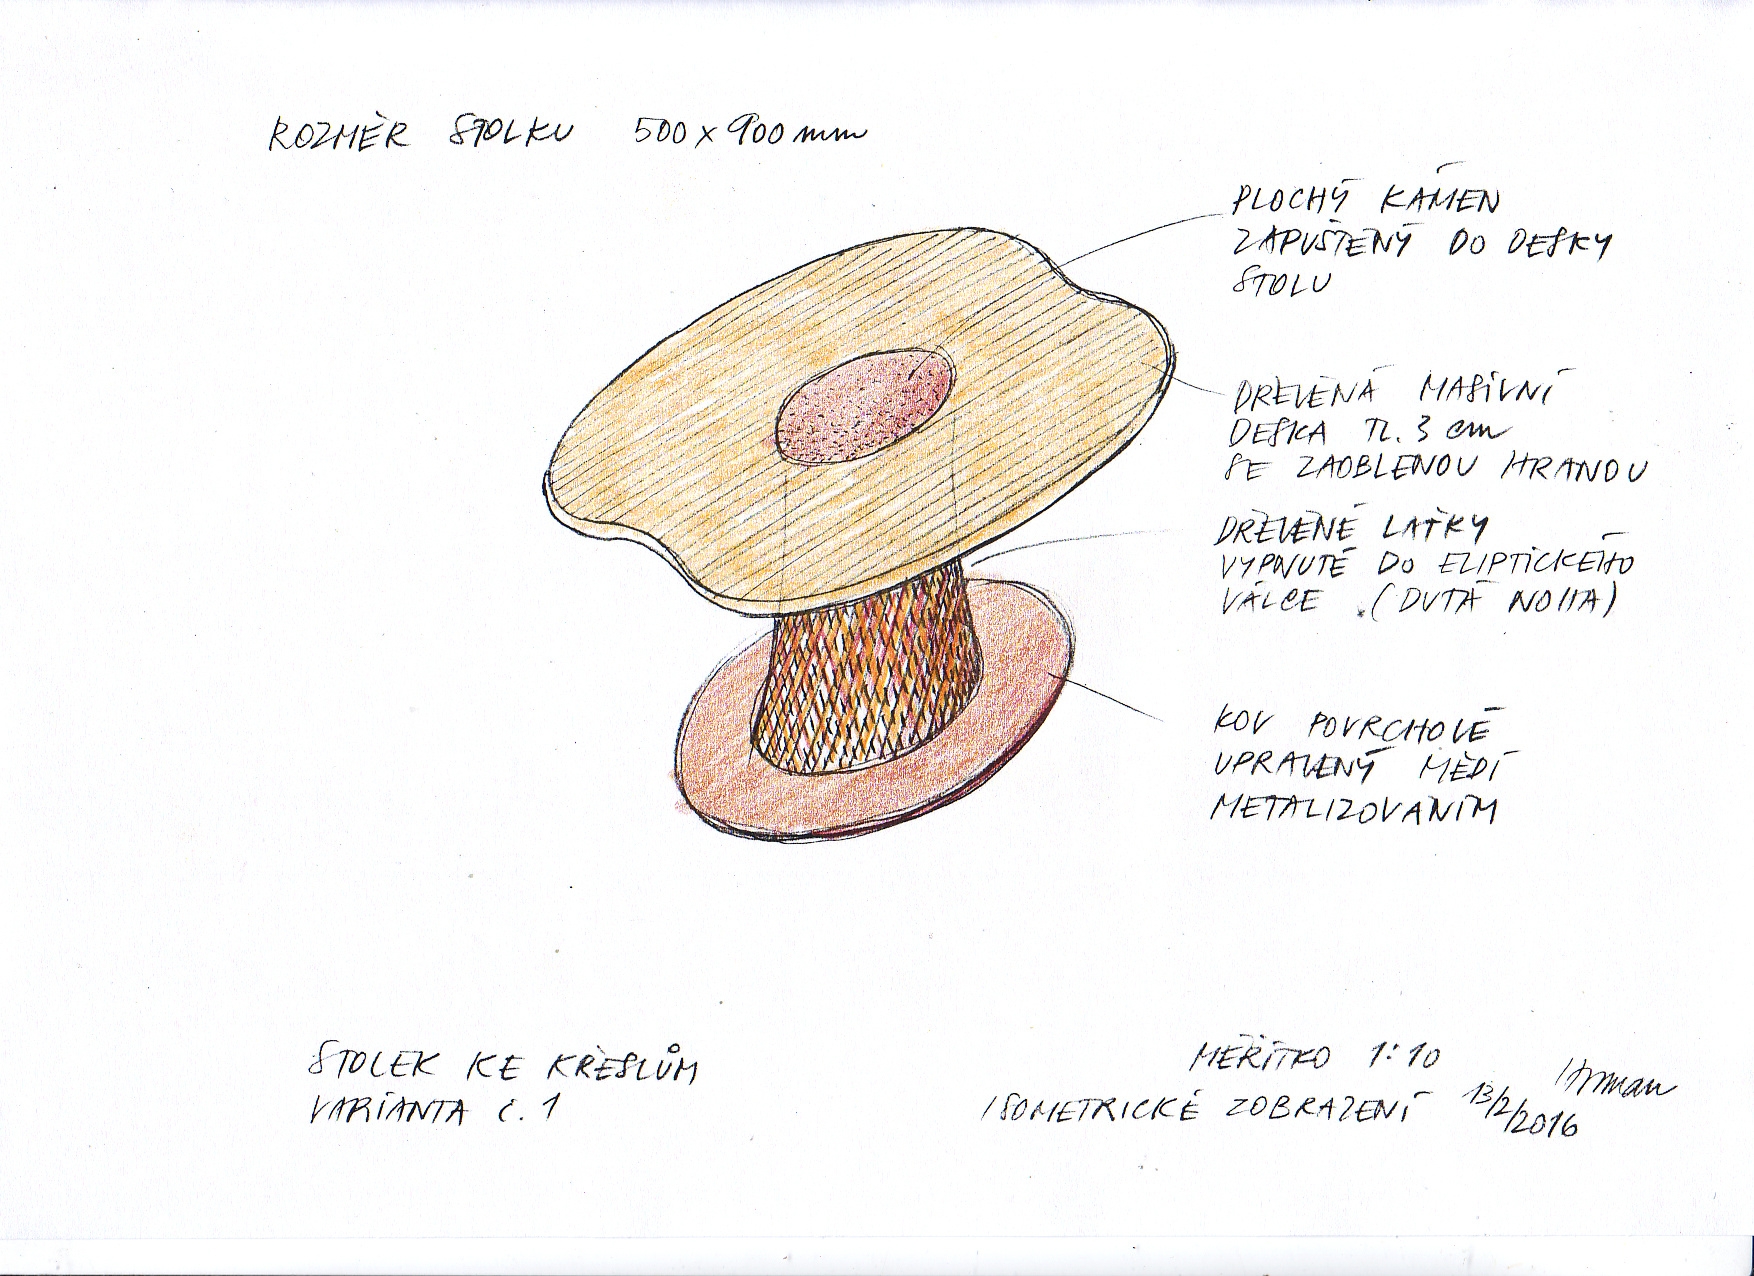 ROZMĚR STOLKU 500 x 900 mm
PLOCHÝ KÁMEN
ZAPUŠTĚNÝ DO DESKY
STOLU
DŘEVĚNÁ MASIVNÍ
DESKA TL. 3 cm
SE ZAOBLENOU HRANOU
DŘEVĚNÉ LAŤKY
VYPNUTÉ DO ELIPTICKÉHO
VÁLCE. (DUTÁ NOHA)
KOV POVRCHOVĚ
UPRAVENÝ MĚDÍ
METALIZOVÁNÍM
STOLEK KE KŘESLŮM
VARIANTA Č. 1
MĚŘÍTKO 1:10
ISOMETRICKÉ ZOBRAZENÍ 13/2/2016